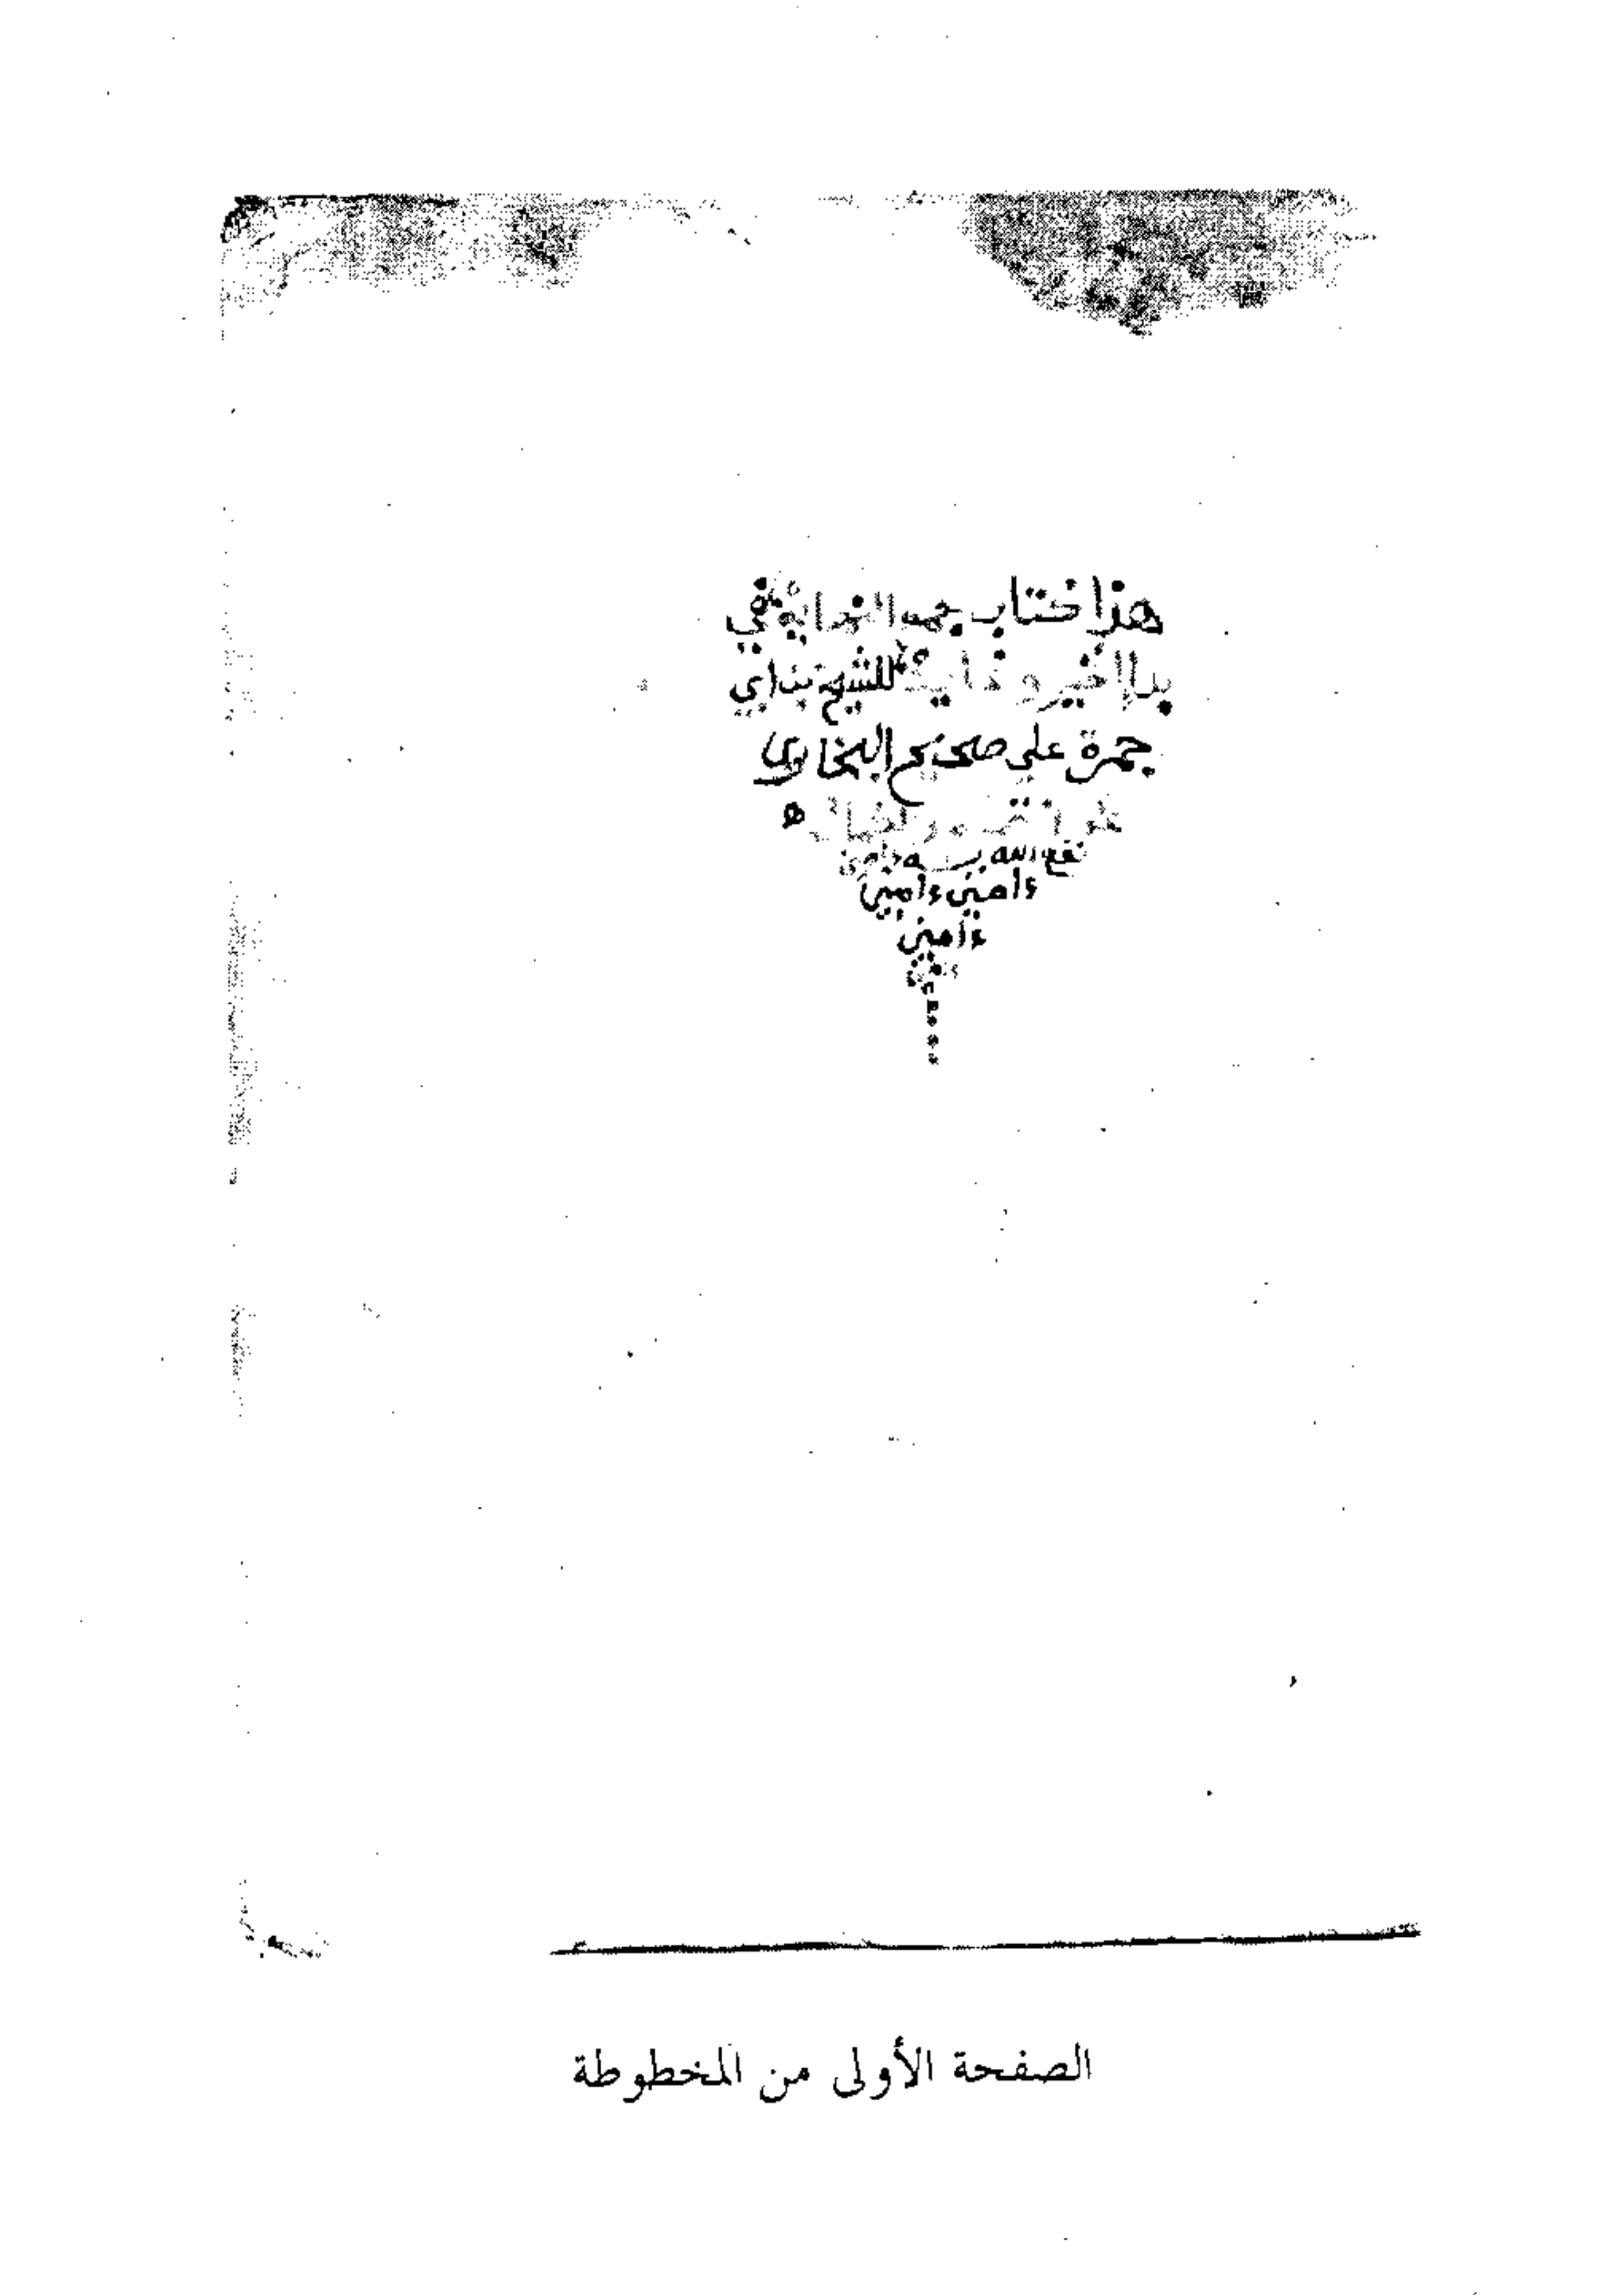 هذا كتاب جمع النهاية في
بدإ الخير وغاية للشيخ بن أبي
جمرة علي صحيح البخاري
نفع الله به ءامين
ءامين ءامين
ءامين
الصفحة الأولى من المخطوطة